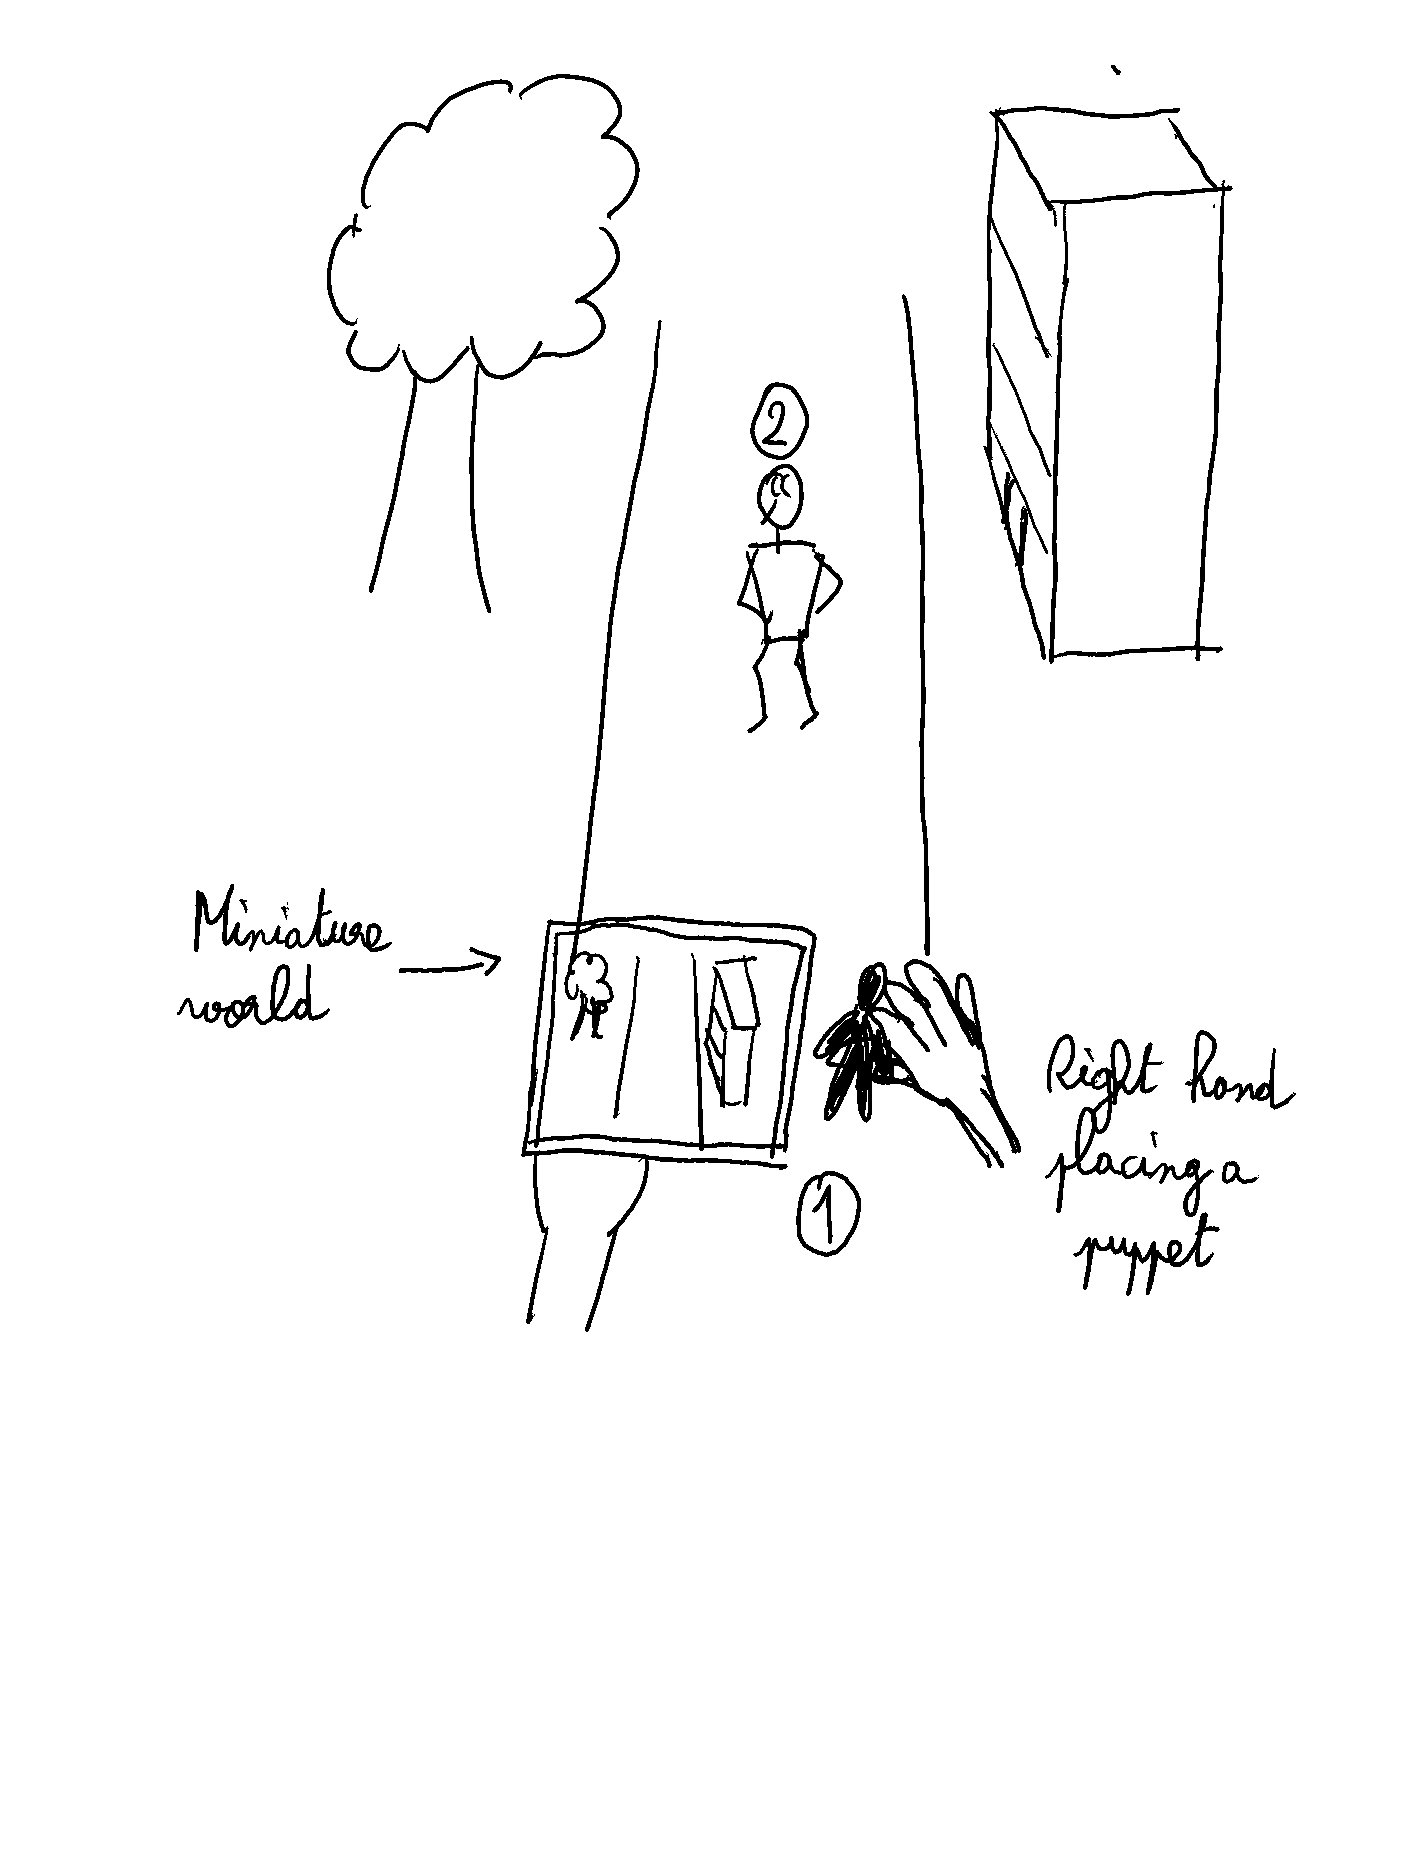 2
Miniature
world
Right hand
placing a
puppet
1